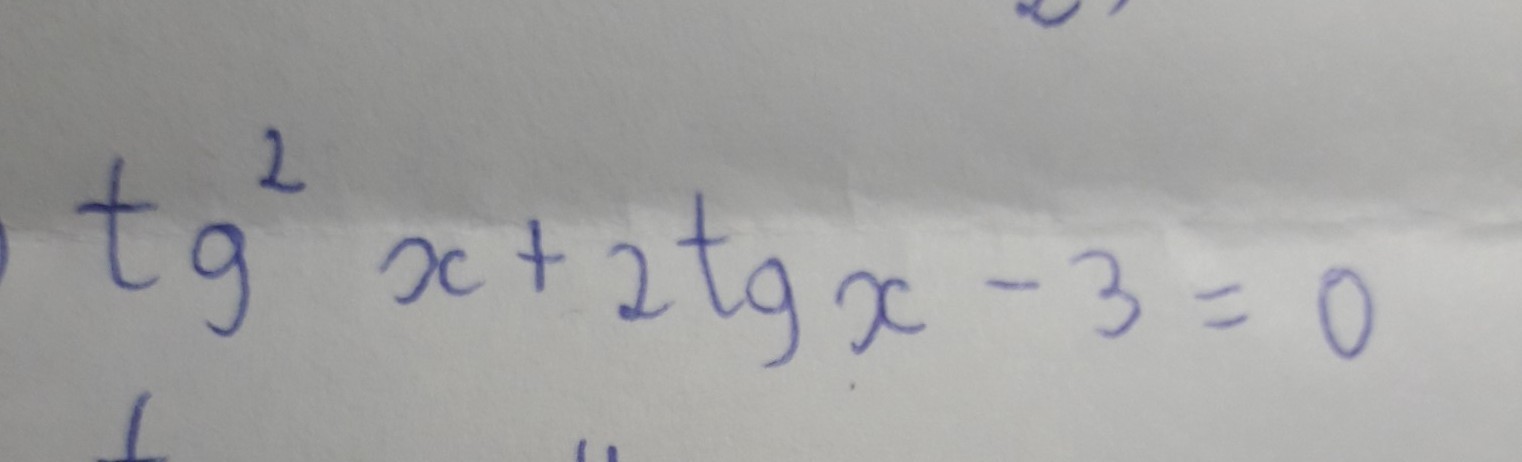 tg² x + 2tg x - 3 = 0